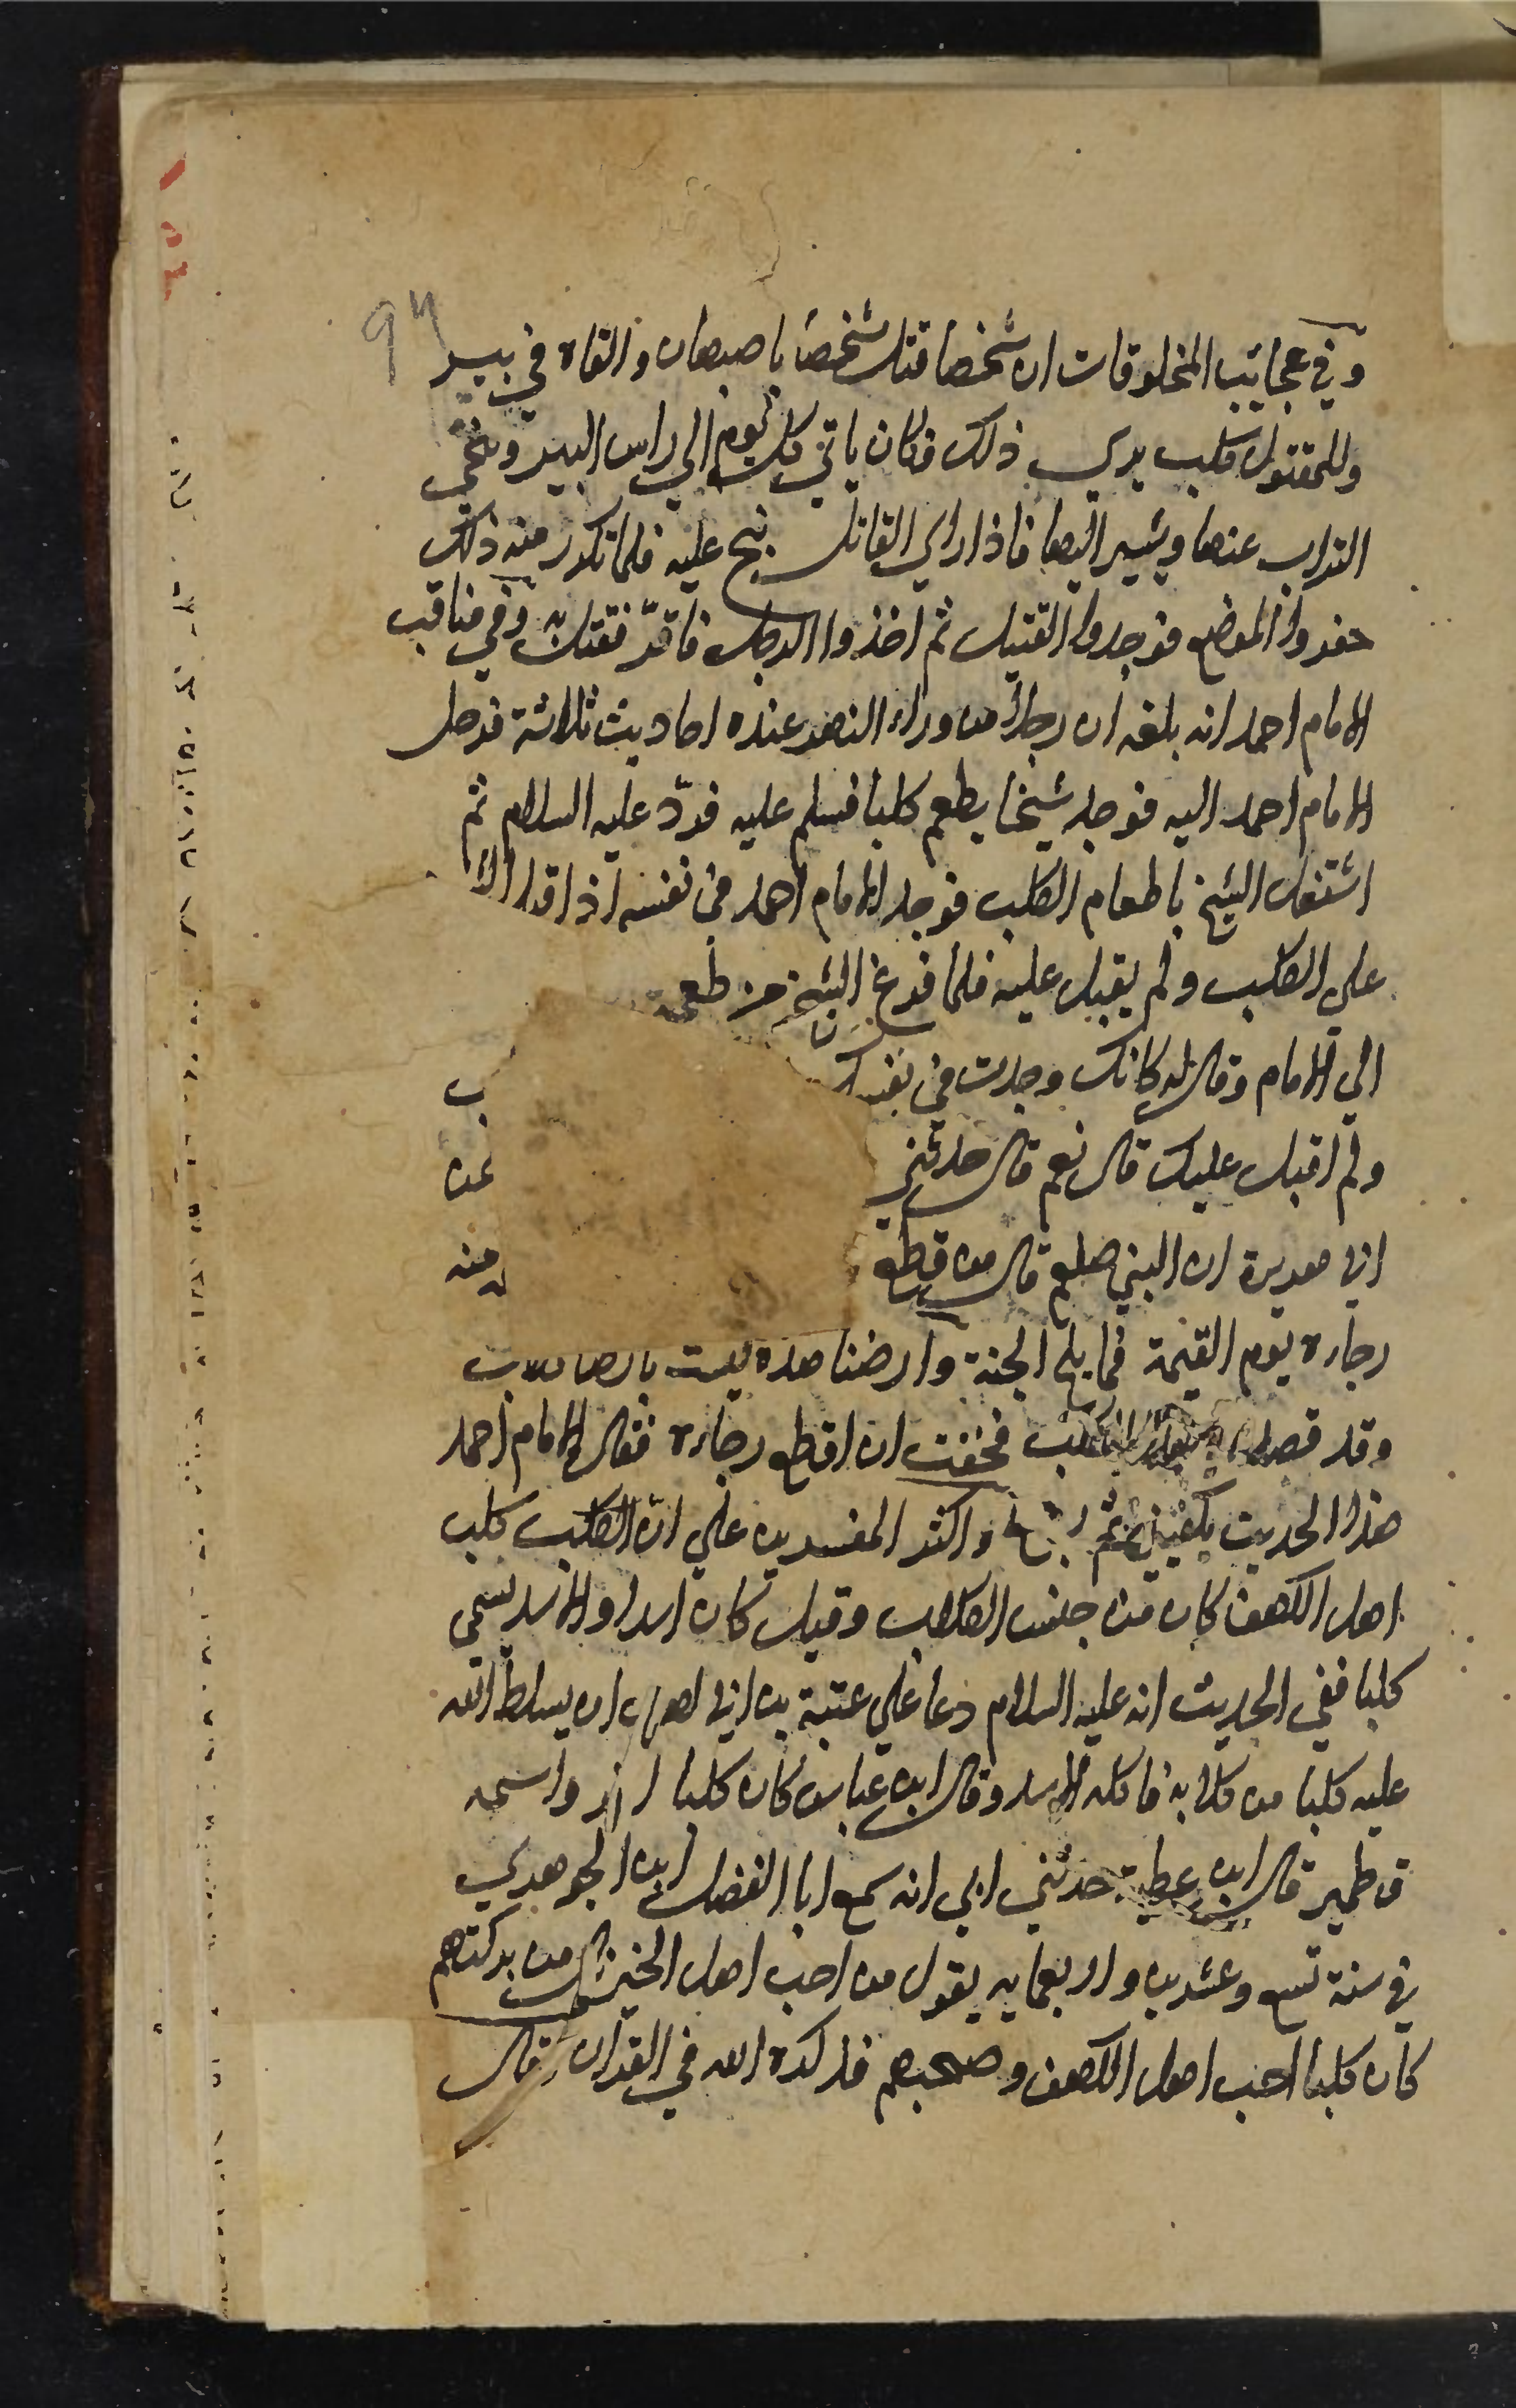 94
وفي عجايب المخلوقات ان شخصا قتل شخصا باصبهان والقاه في بير
وللمقتول كلب يري ذلك فكان ياتي كل يوم الي راس البير وينحي
التراب عنها ويشير اليها فاذا راي القاتل نبح عليه فلما تكرر منه ذلك
حفروا الموضع فوجدوا القتيل ثم اخذوا الرجل فاقر فقتل به وفي مناقب
الامام احمد انه بلغه ان رجلا من وراء النهر عنده احاديث ثلاثة فرحل
الامام احمد اليه فوجد شيخا يطعم كلبا فسلم عليه فردّ عليه السلام ثم
اشتغل الشيخ باطعام الكلب فوجد الامام احمد في نفسه اذا قبل
علي الكلب ولم يقبل عليه فلما فرغ الشيخ من طعمة
الي الامام وقال له كانك وجدت في نفسك
ولم اقبل عليك قال نعم قال حدثني
ابي هريرة ان النبي صلعم قال من قطع منه
رجاءه يوم القيمة فما يلج الجنة وارضنا هذه ليست بارض كلاب
وقد قصدني الكلب فخفت ان اقطع رجاءه فقال الامام احمد
هذا الحديث يكفيني ثم رجع واكثر المفسرين علي ان الكلب كلب
اهل الكهف كان من جنس الكلاب وقيل كان اسدا والاسد يسمي
كلبا ففي الحديث انه عليه السلام دعا علي عتبة بن ابي لهب ان يسلط الله
عليه كلبا من كلابه فاكله الاسد وقال ابن عباس كان كلبا واسمه
قطمير قال ابن عطية حدثني ابي انه سمع ابا الفضل ابن الجوهري
في سنة تسع وعشرين واربعمايه يقول من احب اهل الخير نال من بركتهم
كان كلبا احب اهل الكهف وصحبهم فذكره الله في القران وقال